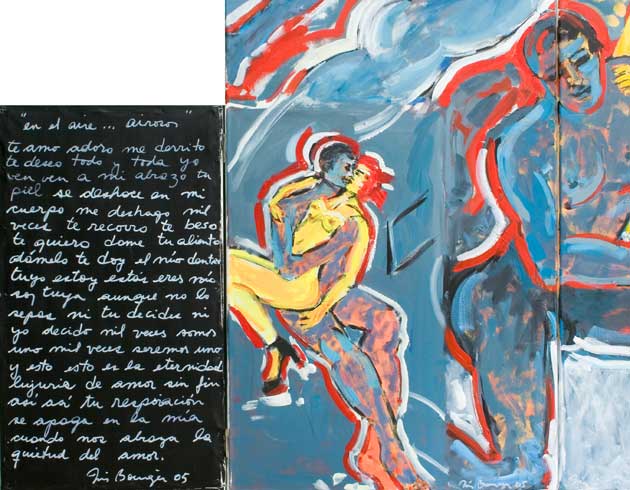 "en el aire... airosos"
te amo adoro me derrito
te deseo todo y toda yo
ven ven a mi abrazo tu
piel se deshoce en mi
cuerpo me deshago mil
veces te recorro te beso
te quiero dame tu aliento
dámelo te doy el mío dentro
tuyo estoy estás eres mío
soy tuya aunque no lo
sepas ni tu decides ni
yo decido mil veces somos
uno mil veces seremos uno
y esto esto es la eternidad
lujuria de amor sin fin
así así tu respiración
se apaga en la mía
cuando nos abraza la
quietud del amor.
05
05